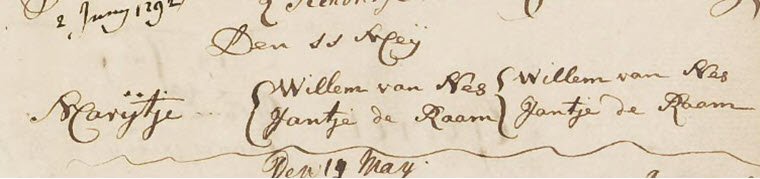 2 Juny 1792
Den 11 Meÿ
Marÿtje { Willem van Nes { Willem van Nes
{ Jantje de Raam { Jantje de Raam
Den 19 May.